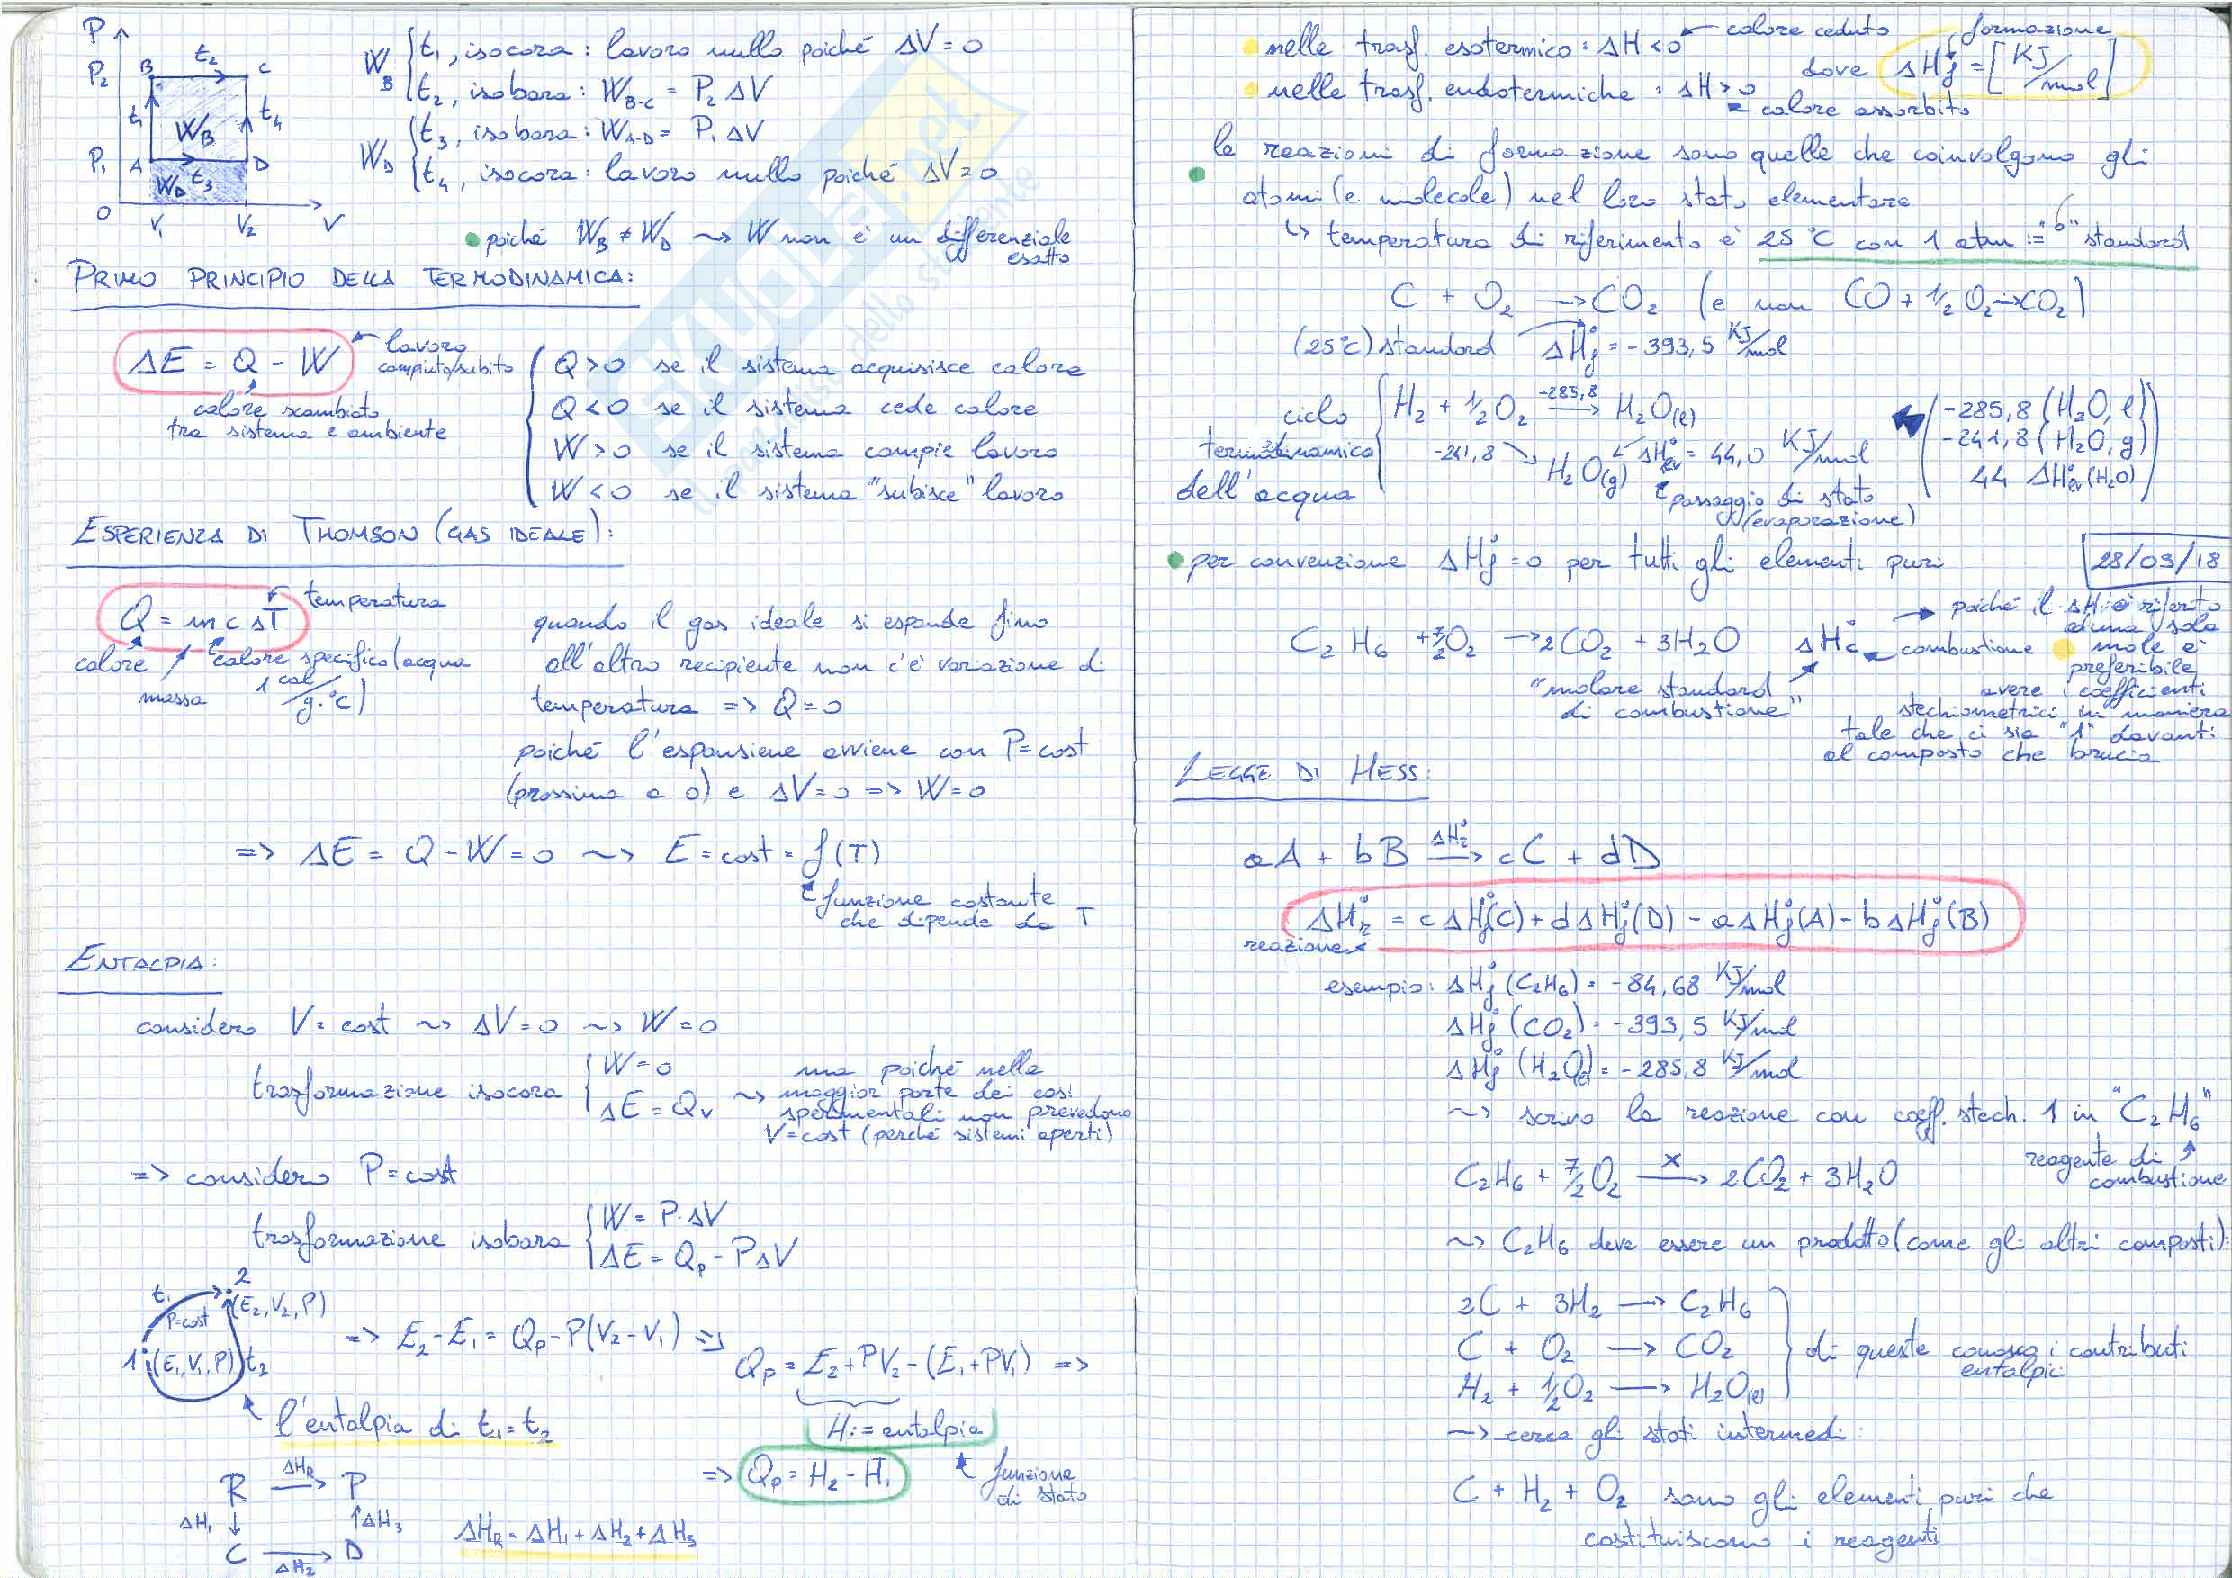 P
P₂
P₁
B
t₂
C
t₁
t₄
W_B
A
D
W_D
t₃
O
V₁
V₂
V
W_B
t₁, isocora: lavoro nullo poiché ΔV = 0
t₂, isobara: W_B-C = P₂ ΔV
W_D
t₃, isobara: W_A-D = P₁ ΔV
t₄, isocora: lavoro nullo poiché ΔV = 0
poiché W_B ≠ W_D ~> W non è un differenziale
esatto
PRIMO PRINCIPIO DELLA TERMODINAMICA:
ΔE = Q - W
lavoro
compiuto/subito
calore scambiato
tra sistema e ambiente
Q>0 se il sistema acquisisce calore
Q<0 se il sistema cede calore
W>0 se il sistema compie lavoro
W<0 se il sistema "subisce" lavoro
ESPERIENZA DI THOMSON (GAS IDEALE):
Q = m c ΔT
temperatura
calore
massa
calore specifico (acqua
1 cal/g·°C)
quando il gas ideale si espande fino
all'altro recipiente non c'è variazione di
temperatura => Q = 0
poiché l'espansione avviene con P = cost
(prossima a 0) e ΔV = 0 => W = 0
=> ΔE = Q - W = 0 ~> E = cost = f(T)
funzione costante
che dipende da T
ENTALPIA:
considero V = cost ~> ΔV = 0 ~> W = 0
trasformazione isocora
W = 0
ΔE = Qv
~> ma poiché nella
maggior parte dei casi
sperimentali non prevedono
V = cost (perché sistemi aperti)
=> considero P = cost
trasformazione isobara
W = P·ΔV
ΔE = Qp - PΔV
t₁
2
(E₂, V₂, P)
P=cost
1
(E₁, V₁, P)
t₂
=> E₂ - E₁ = Qp - P(V₂ - V₁) =>
Qp = E₂ + PV₂ - (E₁ + PV₁) =>
l'entalpia di t₁ = t₂
H := entalpia
=> Qp = H₂ - H₁
funzione
di stato
R
ΔH_R
P
ΔH₁
ΔH₃
C
ΔH₂
D
ΔH_R = ΔH₁ + ΔH₂ + ΔH₃
nelle trasf. esotermico: ΔH < 0
calore ceduto
nelle trasf. endotermiche: ΔH > 0
calore assorbito
dove ΔH°f = [KJ/mol]
formazione
le reazioni di formazione sono quelle che coinvolgono gli
atomi (e molecole) nel loro stato elementare
↳ temperatura di riferimento è 25 °C con 1 atm := "°" standard
C + O₂ → CO₂ (e non CO + ½ O₂ → CO₂)
(25°C) standard ΔH°f = -393,5 KJ/mol
ciclo
termodinamico
dell'acqua
H₂ + ½O₂ → H₂O(l)
-285,8
-241,8
H₂O(g)
ΔH°ev = 44,0 KJ/mol
passaggio di stato
(evaporazione)
-285,8 (H₂O, l)
-241,8 (H₂O, g)
44 ΔH°ev (H₂O)
per convenzione ΔH°f = 0 per tutti gli elementi puri
28/03/18
C₂H₆ + 7/2 O₂ → 2CO₂ + 3H₂O ΔH°c
combustione
"molare standard
di combustione"
poiché il ΔH è riferito
ad una sola
mole è
preferibile
avere i coefficienti
stechiometrici in maniera
tale che ci sia "1" davanti
al composto che brucia
LEGGE DI HESS:
aA + bB → cC + dD
ΔH°r
ΔH°r = cΔH°f(C) + dΔH°f(D) - aΔH°f(A) - bΔH°f(B)
reazione
esempio: ΔH°f (C₂H₆) = -84,68 KJ/mol
ΔH°f (CO₂) = -393,5 KJ/mol
ΔH°f (H₂O(l)) = -285,8 KJ/mol
~> scrivo la reazione con coeff. stech. 1 in "C₂H₆"
reagente di
combustione
C₂H₆ + 7/2 O₂ →x 2CO₂ + 3H₂O
~> C₂H₆ deve essere un prodotto (come gli altri composti):
2C + 3H₂ → C₂H₆
C + O₂ → CO₂
H₂ + ½O₂ → H₂O(l)
di queste conosco i contributi
entalpici
→ cerco gli stati intermedi:
C + H₂ + O₂ sono gli elementi puri che
costituiscono i reagenti